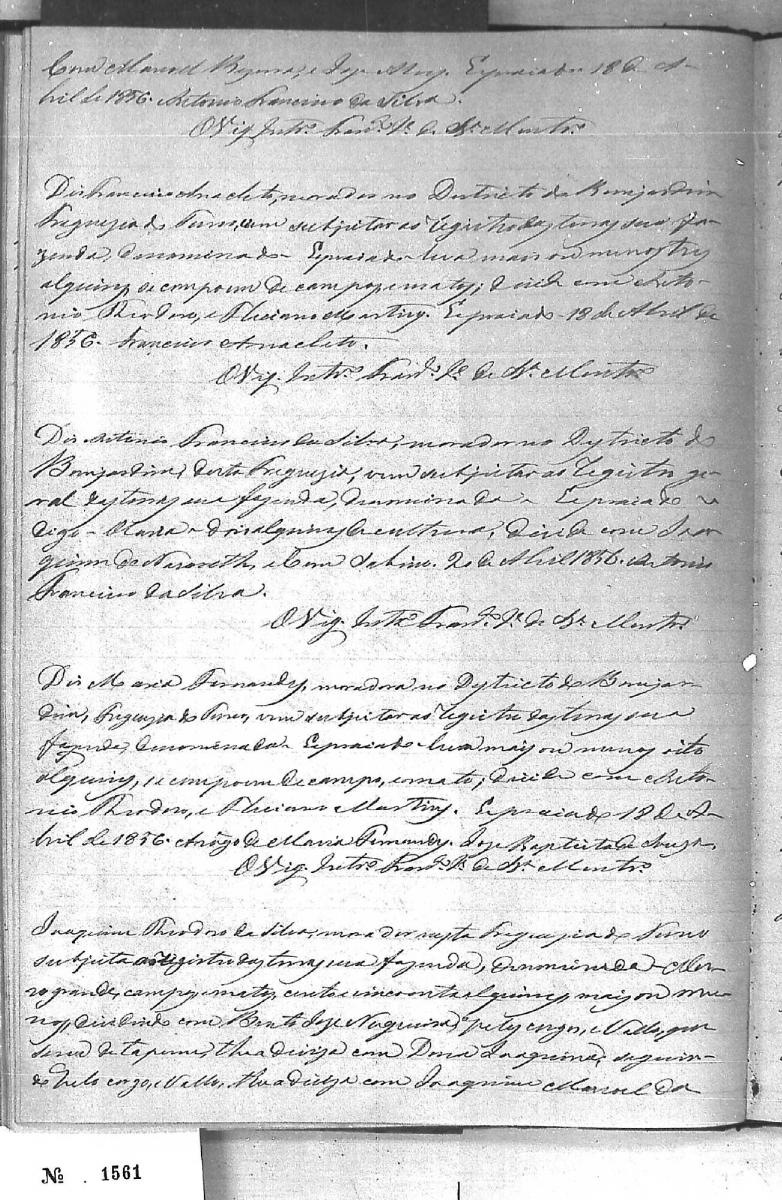 com Manoel e Jose Espraiado 18 de A-
bril de 1856. Antonio Francisco da Silva.
O Vig. Intr.º Fran.co de Monts.
Diz Francisco Anacleto, morador no Districto do Bomjardim
Freguezia do vem subjeitar ao registro das terras sua fa-
zenda, denominada - Espraiado - leva mais ou menos tres
alqueires se compoem de campos e matos; divide com Anto-
nio Theodoro, e Feliciano Martins. Espraiado 18 de Abril de
1856. Francisco Anacleto.
O Vig. Intr.º Fran.co de Monts.
Diz Antonio Francisco da Silva, morador no Dystricto do
Bomjardim, desta Freguezia, vem subjeitar ao registro ge-
ral das terras sua fazenda, denominada - Espraiado
digo - Olaria - dois alqueires de cultura, divide com Joa-
quim de Nazareth, e com Sabino. 20 de Abril 1856. Antonio
Francisco da Silva.
O Vig. Intr.º Fran.co de Monts.
Diz Maria Fernandes, moradora no Dystricto do Bomjar-
dim, Freguezia do vem subjeitar ao registro das terras sua
fazenda, denominada - Espraiado - leva mais ou menos oito
alqueires, se compoem de campo, e mato; divide com Anto-
nio Theodoro, e Feliciano Martins. Espraiado 18 de A-
bril de 1856. Arôgo de Maria Fernandes. Jose Baptista de Souza.
O Vig. Intr.º Fran.co de Monts.
Joaquim Theodoro da Silva, morador nesta Freguezia do
subjeita ao registro das terras sua fazenda, denominada - Mor-
ro grande, campos e matos, cento e cincoenta alqueires mais ou me-
nos, dividindo com Bento Jose Nogueira, pelos corgos, e Vallos, que
serve de tapume, the a diviza com Dona Joaquina, seguin-
do pelo corgo, e Vallo, the a diviza com Joaquim Manoel da
Nº 1561